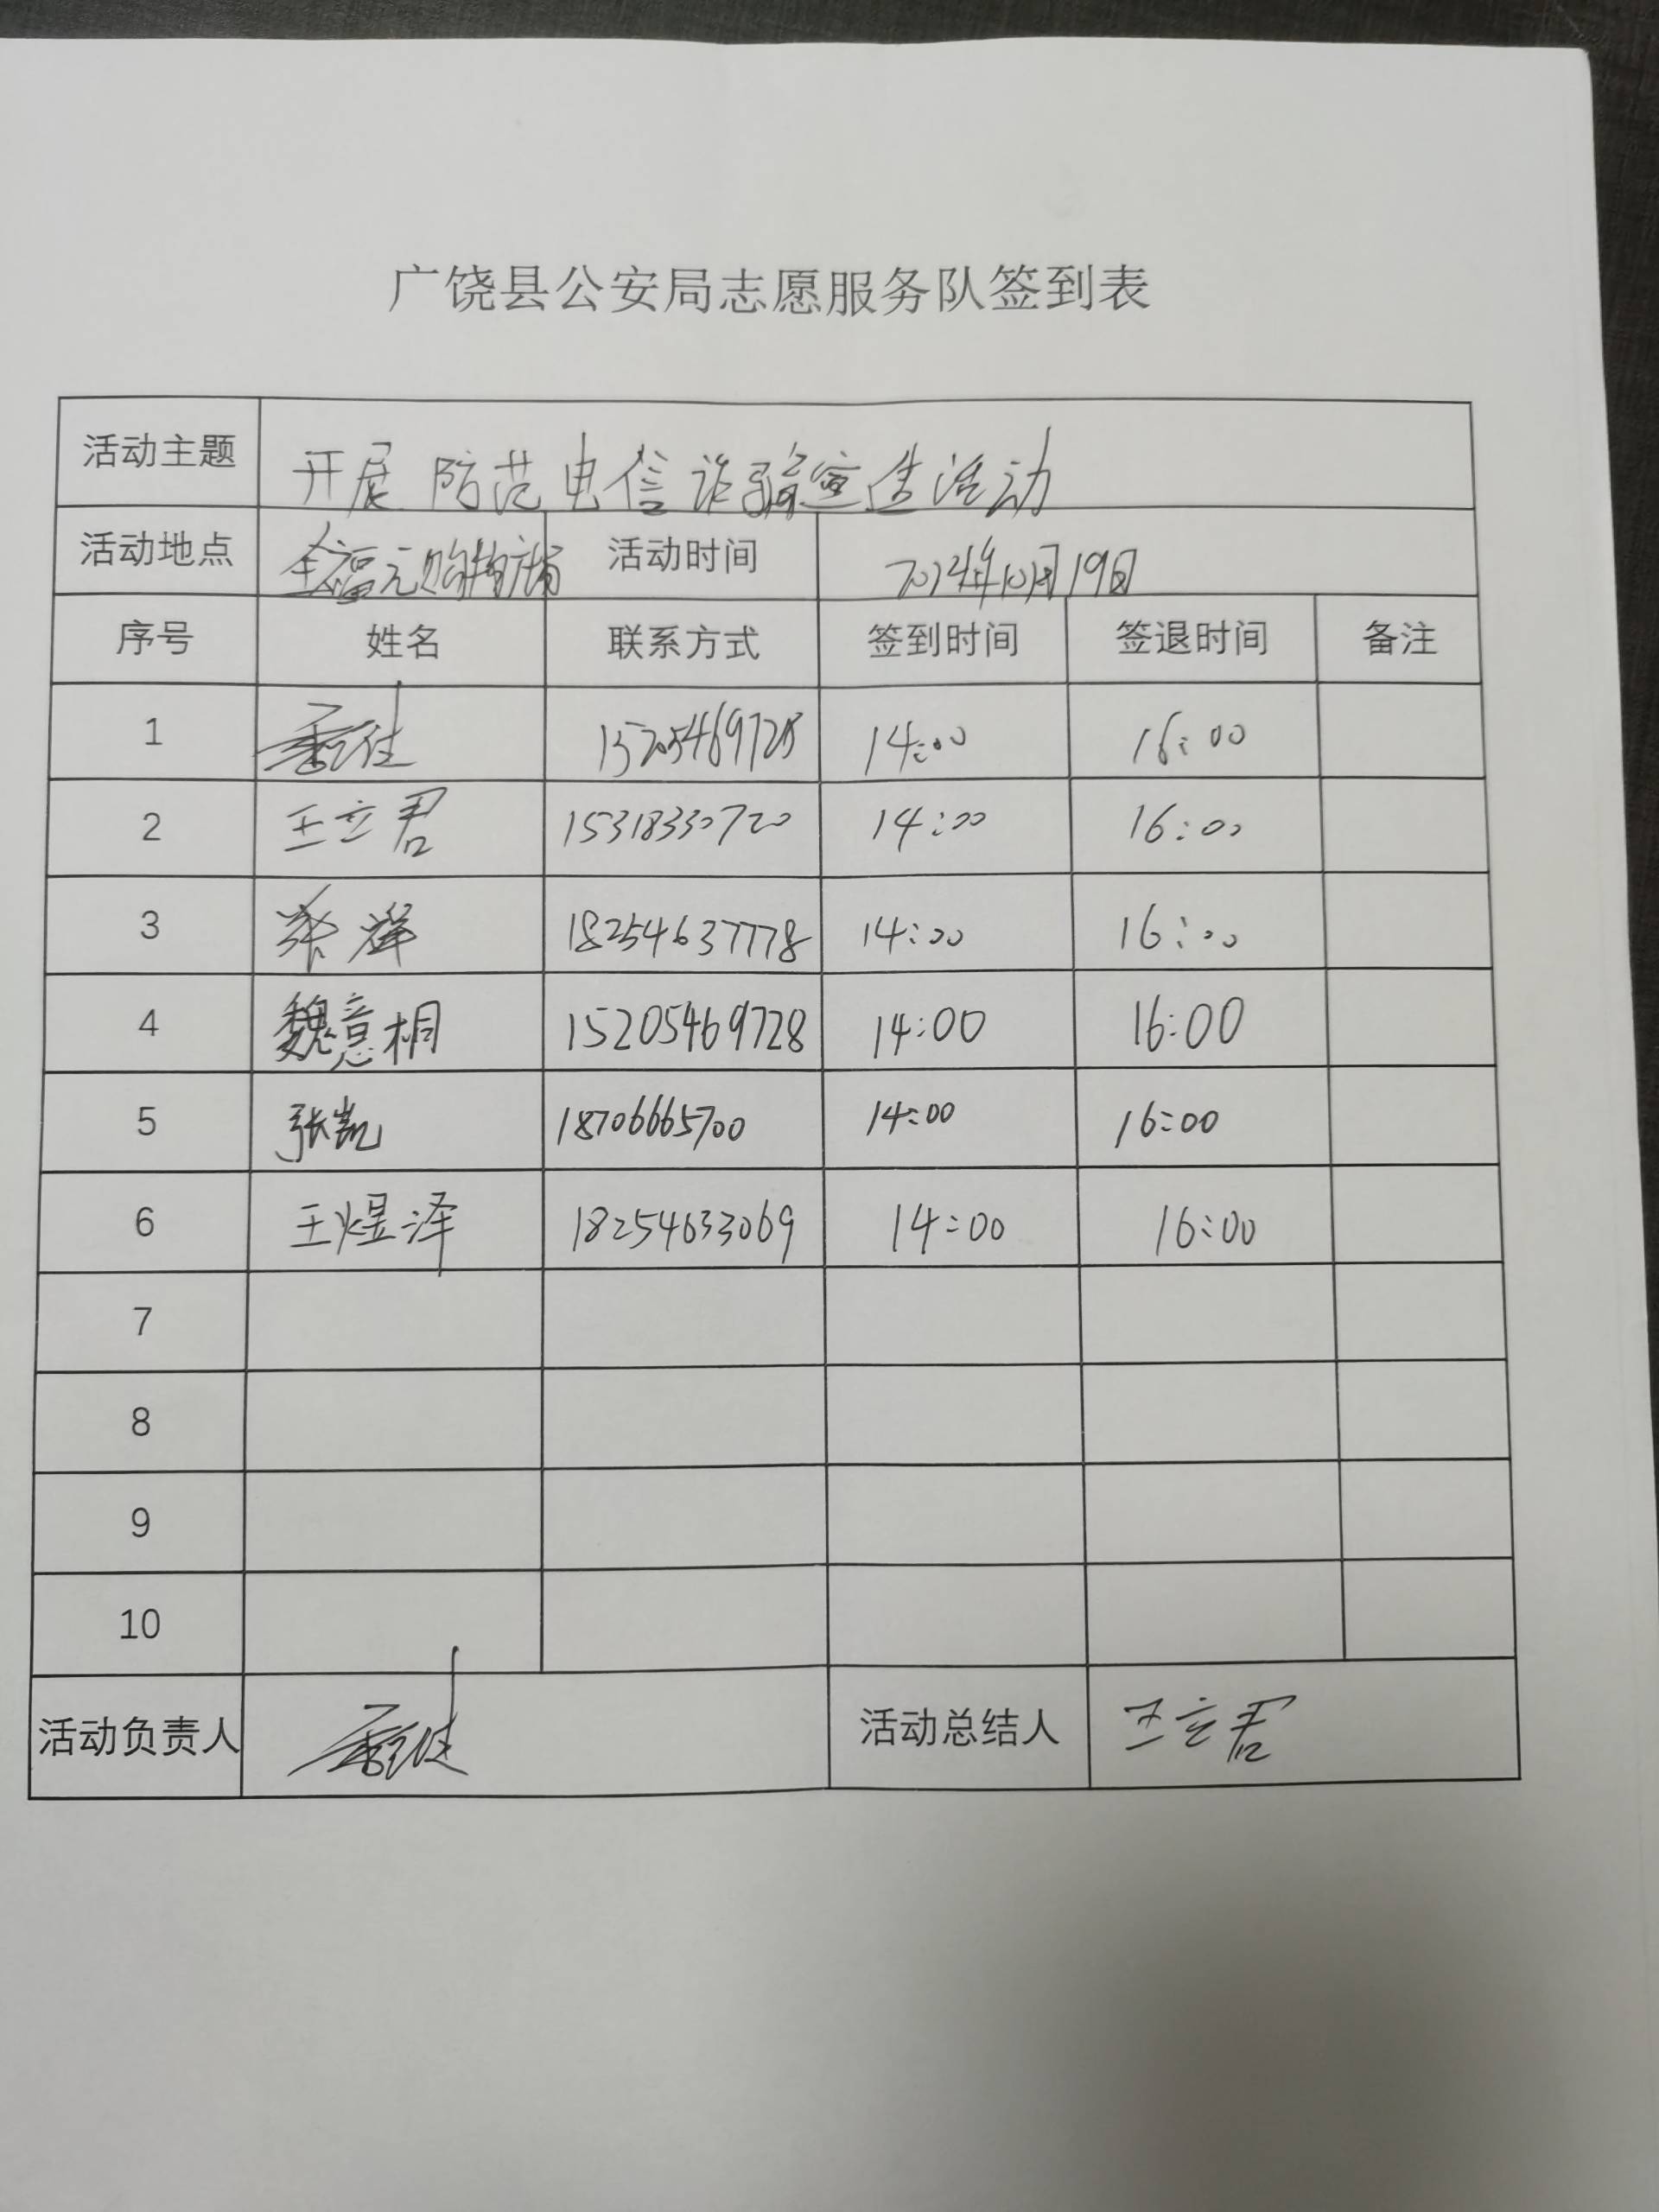 广饶县公安局志愿服务队签到表
活动主题 开展防范电信诈骗宣传活动
活动地点 全福元购物广场 活动时间 2024年10月19日
序号 姓名 联系方式 签到时间 签退时间 备注
1 14:00 16:00
2 王立君 15318330720 14:00 16:00
3 18254637778 14:00 16:00
4 魏意桐 15205469728 14:00 16:00
5 张凯 18706665700 14:00 16:00
6 王煜泽 18254633069 14:00 16:00
7
8
9
10
活动负责人 活动总结人 王立君